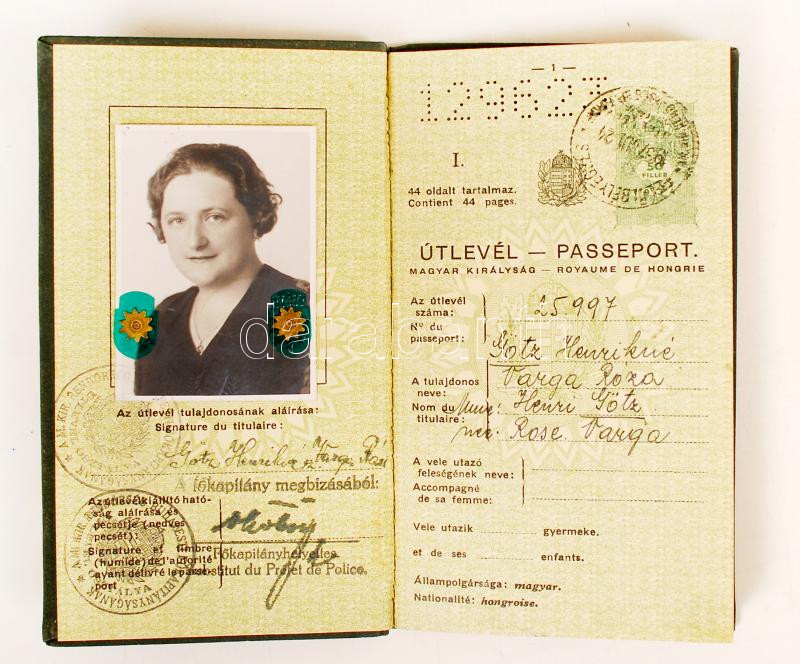 Az útlevél tulajdonosának aláírása:
Signature du titulaire:
Götz Henrikné Varga
főkapitány megbizásából:
Az útlevélkiállító ható-
ság aláírása és
pecsétje (nedves
pecsét):
Signature et timbre
(humide) de l'autorité
ayant délivré le passe-
port
Főkapitányhelyettes
Substitut du Préfet de Police.
— 1 —
129623
I.
44 oldalt tartalmaz.
Contient 44 pages.
50
FILLÉR
ÚTLEVÉL — PASSEPORT.
MAGYAR KIRÁLYSÁG — ROYAUME DE HONGRIE
Az útlevél
száma: 25.997
N° du
passeport:
Götz Henrikné
Varga Róza
A tulajdonos
neve:
Nom du
titulaire:
Mme Henri Götz
née Rose Varga
A vele utazó
feleségének neve:
Accompagné
de sa femme:
Vele utazik gyermeke.
et de ses enfants.
Állampolgársága: magyar.
Nationalité: hongroise.
darabanth